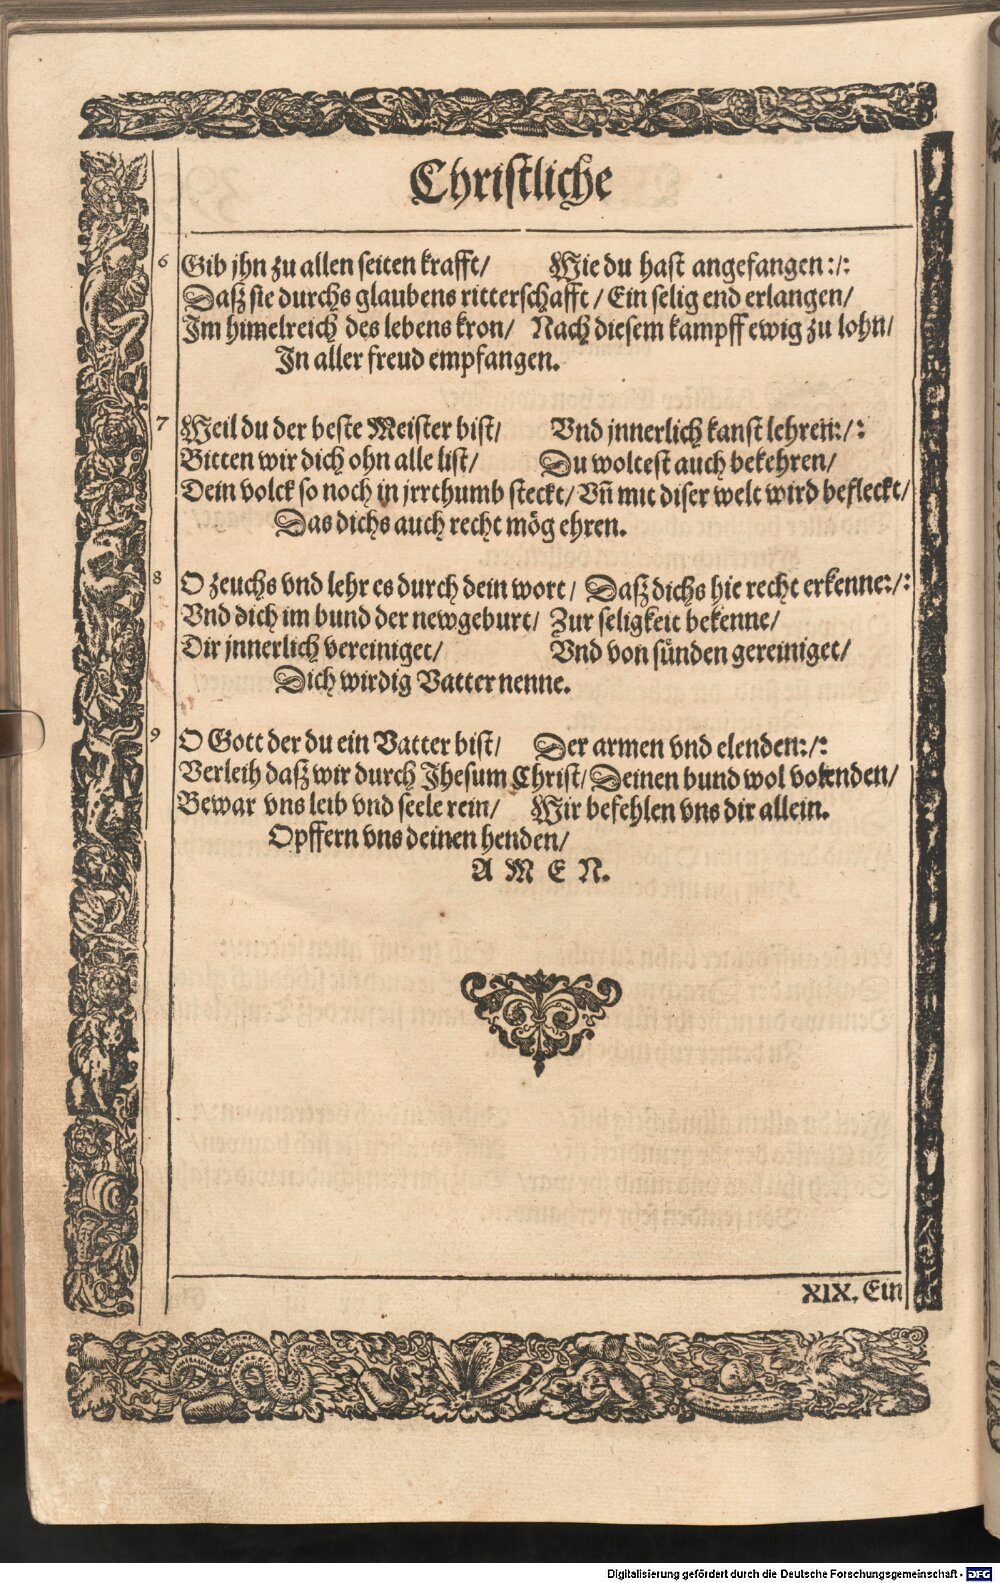 Christliche
6 Gib jhn zu allen seiten krafft/ Wie du hast angefangen:/:
Daß sie durchs glaubens ritterschafft / Ein selig end erlangen/
Im himelreich des lebens kron/ Nach diesem kampff ewig zu lohn/
In aller freud empfangen.
7 Weil du der beste Meister bist/ Vnd jnnerlich kanst lehren:/:
Bitten wir dich ohn alle list/ Du woltest auch bekehren/
Dein volck so noch in jrrthumb steckt/ Vñ mit diser welt wird befleckt/
Das dichs auch recht mög ehren.
8 O zeuchs vnd lehr es durch dein wort/ Daß dichs hie recht erkenne:/:
Vnd dich im bund der newgeburt/ Zur seligkeit bekenne/
Dir jnnerlich vereiniget/ Vnd von sünden gereiniget/
Dich wirdig Vatter nenne.
9 O Gott der du ein Vatter bist/ Der armen vnd elenden:/:
Verleih daß wir durch Jhesum Christ/ Deinen bund wol volenden/
Bewar vns leib vnd seele rein/ Wir befehlen vns dir allein.
Opffern vns deinen henden/
A M E N.
XIX. Ein
Digitalisierung gefördert durch die Deutsche Forschungsgemeinschaft - DFG